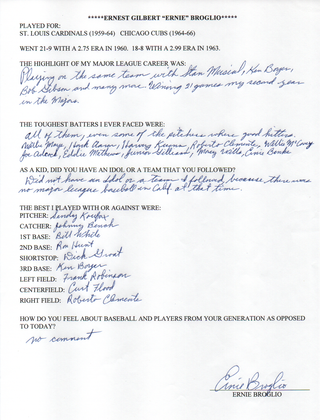 *****ERNEST GILBERT "ERNIE" BROGLIO*****
PLAYED FOR:
ST. LOUIS CARDINALS (1959-64)   CHICAGO CUBS (1964-66)
WENT 21-9 WITH A 2.75 ERA IN 1960.   18-8 WITH A 2.99 ERA IN 1963.
THE HIGHLIGHT OF MY MAJOR LEAGUE CAREER WAS:
Playing on the same team with Stan Musial, Ken Boyer,
Bob Gibson and many more. Winning 21 games my second year
in the Majors.
THE TOUGHEST BATTERS I EVER FACED WERE:
All of them, even some of the pitchers where good hitters.
Willie Mays, Hank Aaron, Harvey Kuenn, Roberto Clemente, Willie McCovey
Joe Adcock, Eddie Mathews, Junior Gilliam, Maury Wills, Ernie Banks
AS A KID, DID YOU HAVE AN IDOL OR A TEAM THAT YOU FOLLOWED?
Did not have an idol or a team I followed because there was
no major league baseball in Calif at that time.
THE BEST I PLAYED WITH OR AGAINST WERE:
PITCHER: Sandy Koufax
CATCHER: Johnny Bench
1ST BASE: Bill White
2ND BASE: Ron Hunt
SHORTSTOP: Dick Groat
3RD BASE: Ken Boyer
LEFT FIELD: Frank Robinson
CENTERFIELD: Curt Flood
RIGHT FIELD: Roberto Clemente
HOW DO YOU FEEL ABOUT BASEBALL AND PLAYERS FROM YOUR GENERATION AS OPPOSED
TO TODAY?
no comment
Ernie Broglio
ERNIE BROGLIO